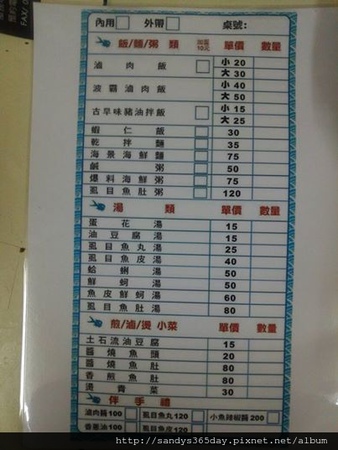 內用 外帶 桌號:
飯/麵/粥 類 單價 數量
滷肉飯 小 20
大 30
波霸滷肉飯 小 40
大 50
古早味豬油拌飯 小 15
大 25
蝦仁飯 30
乾拌麵 35
海景海鮮麵 75
鹹粥 50
爆料海鮮粥 75
虱目魚肚粥 120
湯類 單價 數量
蛋花湯 15
油豆腐湯 15
虱目魚丸湯 25
虱目魚皮湯 40
蛤蜊湯 50
鮮蚵湯 50
魚皮鮮蚵湯 60
虱目魚肚湯 80
煎/滷/燙 小菜 單價 數量
土石流油豆腐 15
醬燒魚頭 20
醬燒魚肚 80
香煎魚肚 80
燙青菜 30
伴手禮
滷肉醬100 虱目魚丸120 小魚辣椒醬200
香蔥油100 虱目魚皮
http://sandys365day.pixnet.net/album